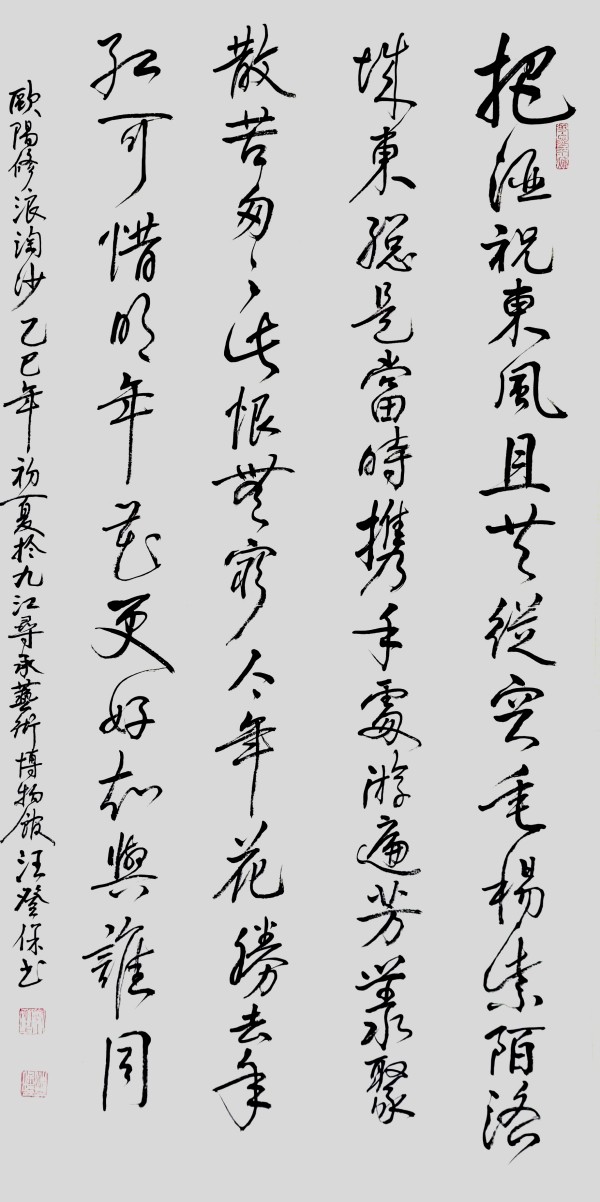 把酒祝東風且共從容垂楊紫陌洛
城東總是當時携手處游遍芳叢聚
散苦匆々此恨無窮今年花勝去年
紅可惜明年花更好知與誰同
歐陽修浪淘沙 乙巳年初夏於九江尋承藝術博物館汪登保书